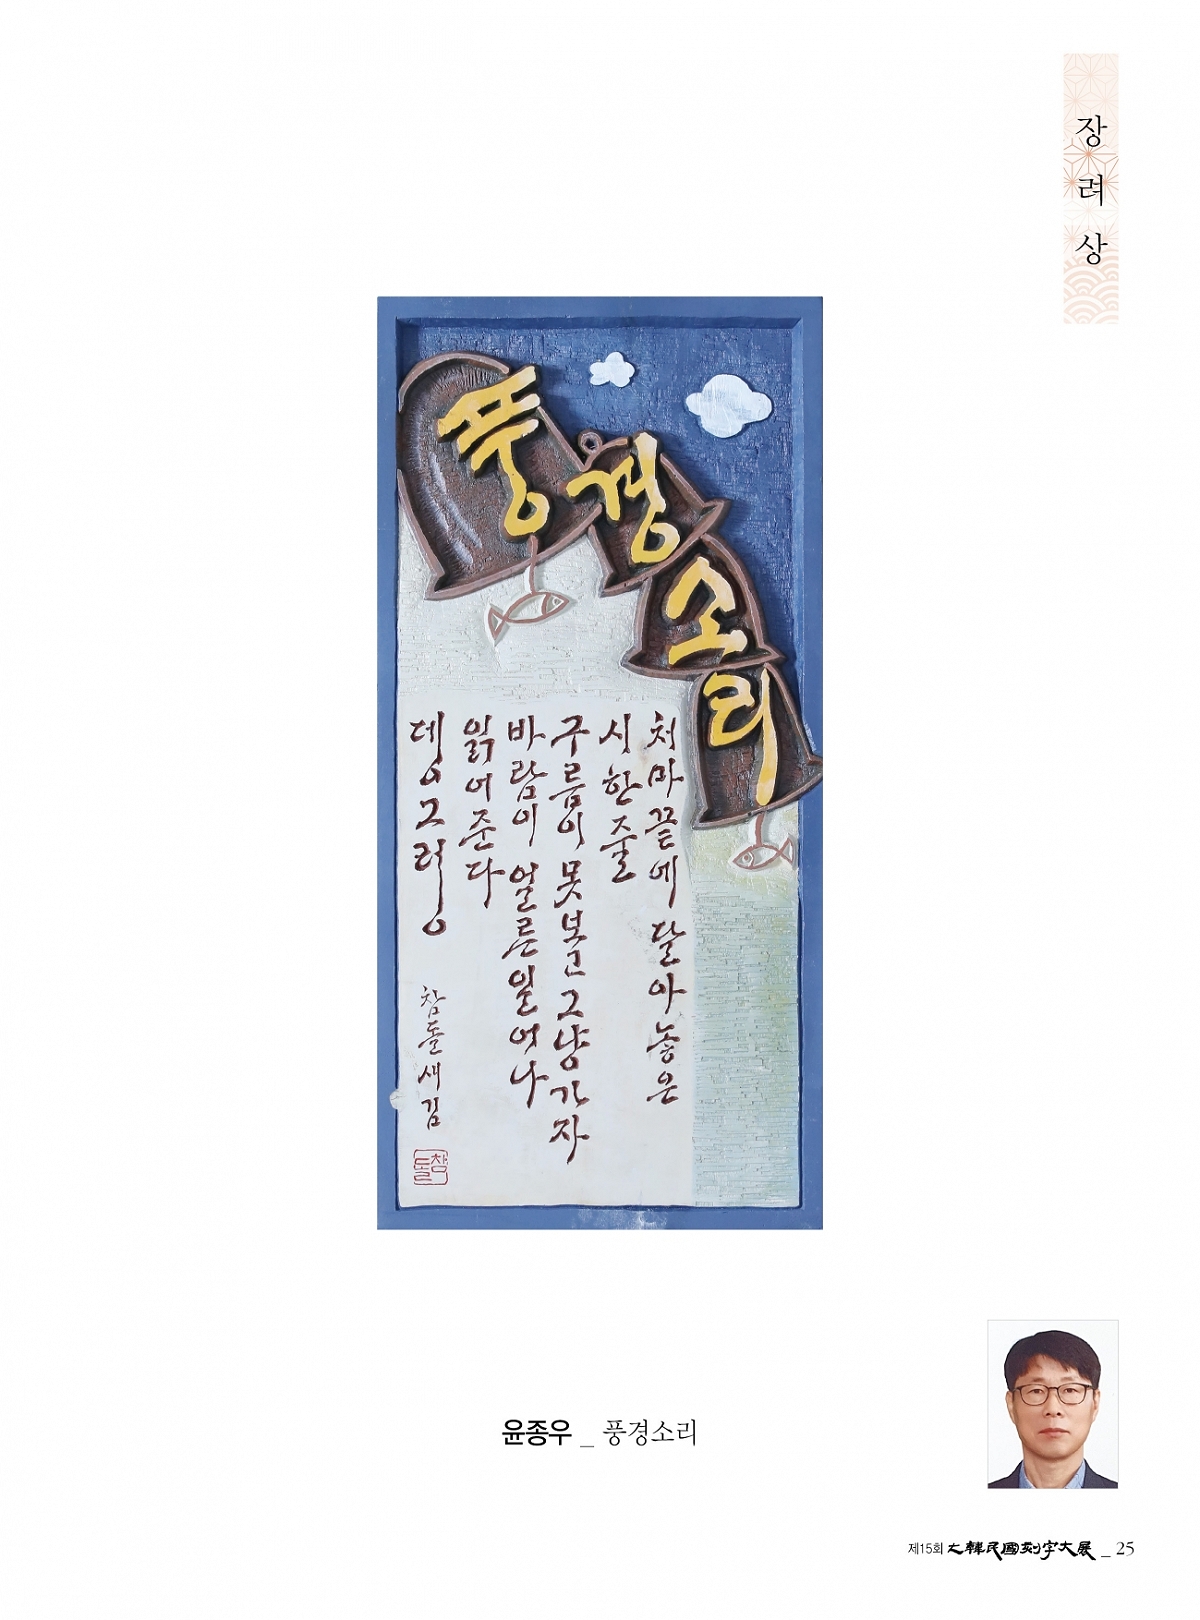 장려상
풍경소리
처마끝에 달아 놓은
시 한 줄
구름이 못 보고 그냥 가자
바람이 얼른 일어나
읽어준다
뎅그렁
참돌새김
참돌
윤종우 _ 풍경소리
제15회 大韓民國刻字大展 _ 25